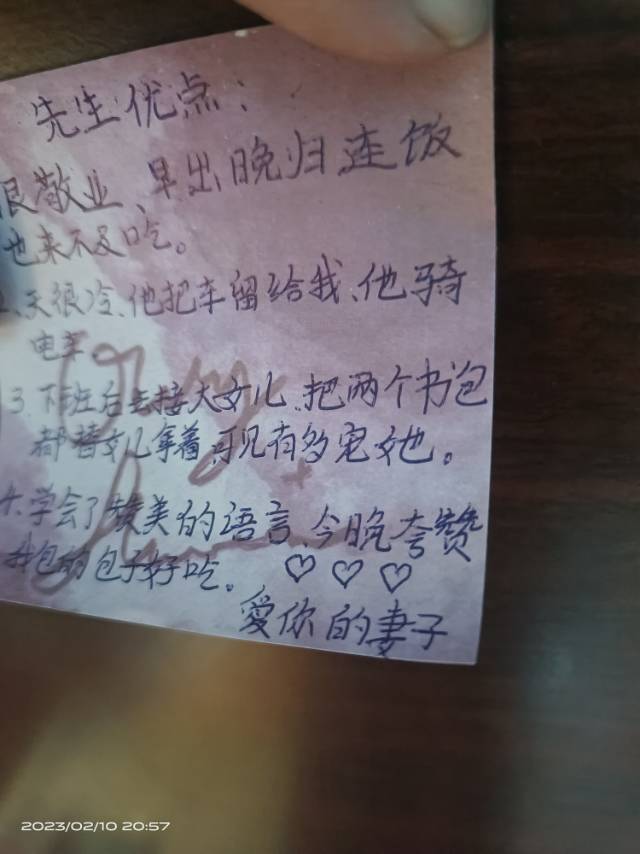 先生优点:
很敬业、早出晚归连饭
也来不及吃。
2、天很冷、他把车留给我、他骑
电车。
3.下班后去接大女儿、把两个书包
都替女儿拿着,可见有多宠女她。
4.学会了赞美的语言、今晚夸赞
我包的包子好吃。♡♡♡
爱你的妻子
2023/02/10 20:57